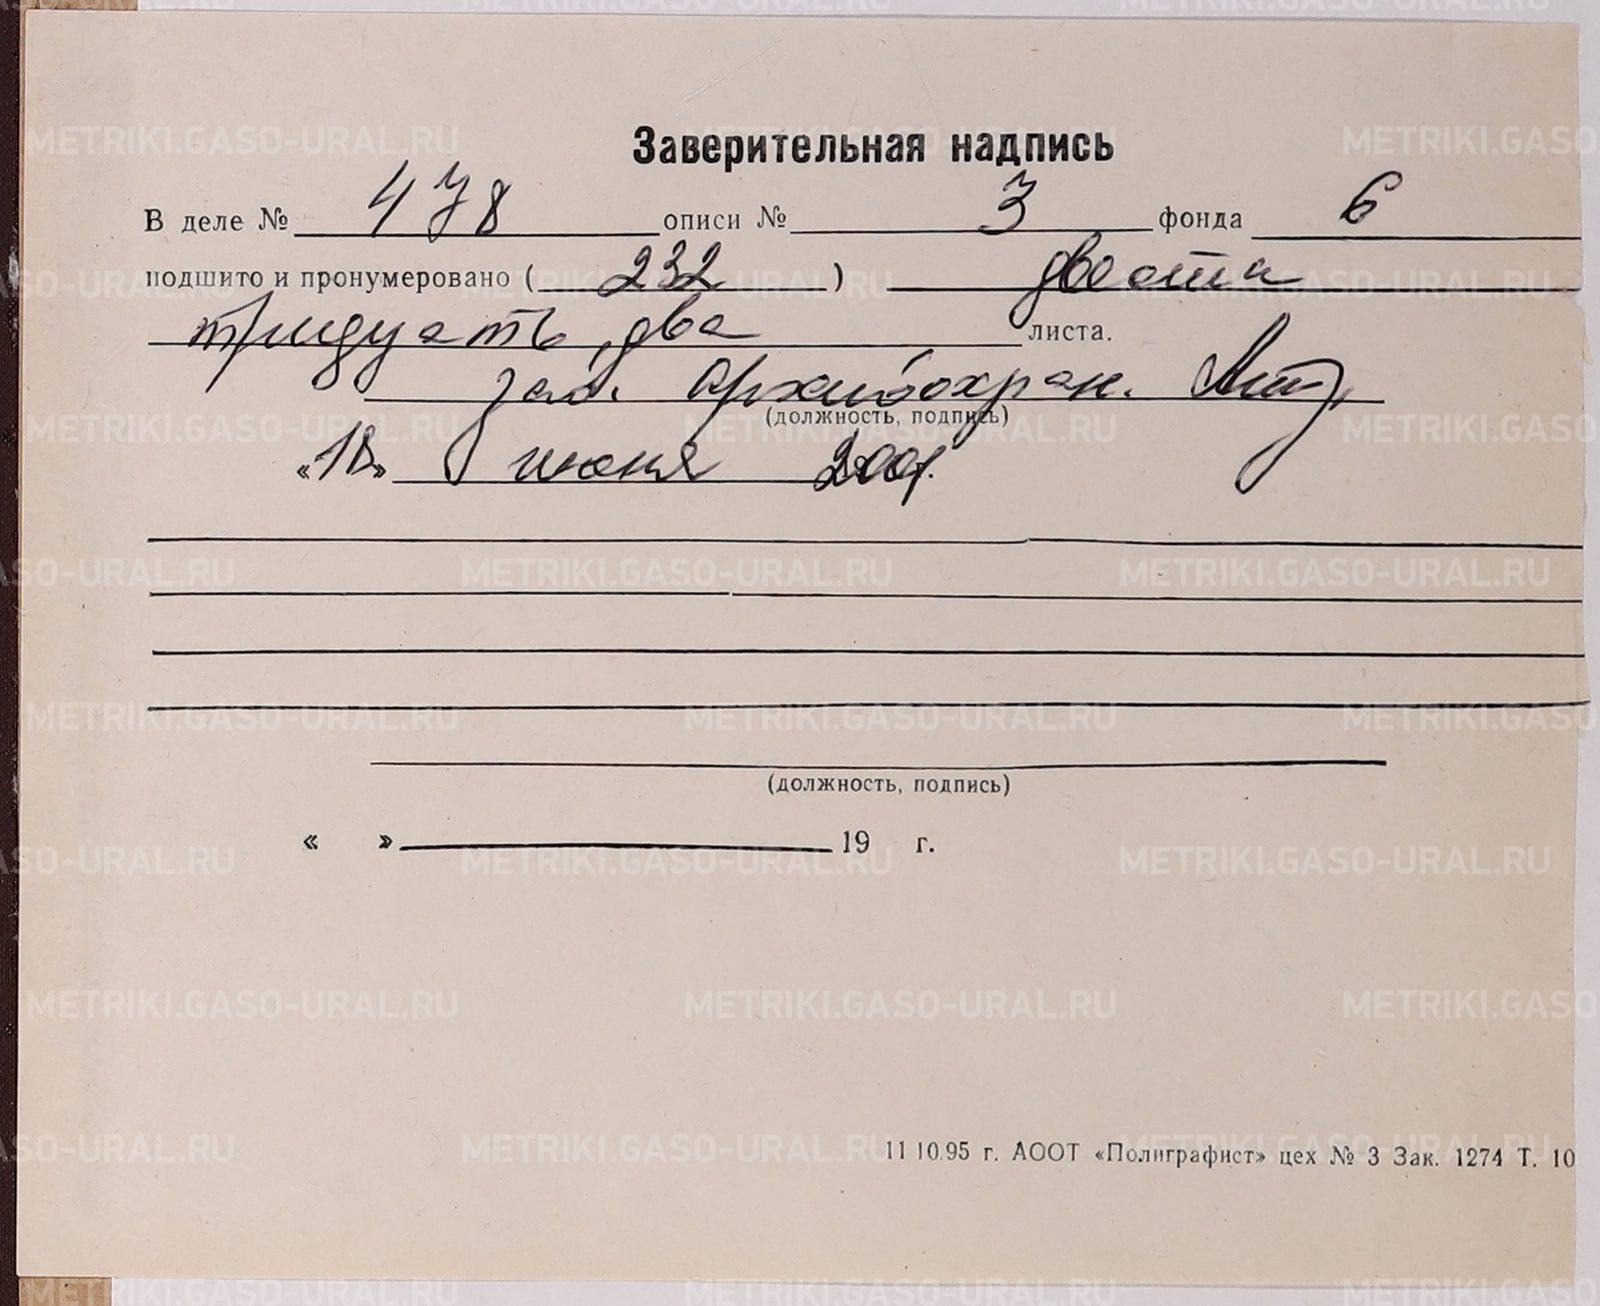 Заверительная надпись
В деле № 478 описи № 3 фонда 6
подшито и пронумеровано ( 232 ) двести
тридцать два листа.
зав. архивохран.
(должность, подпись)
«18» июня 2001.
(должность, подпись)
« » 19 г.
11 10.95 г. АООТ «Полиграфист» цех № 3 Зак. 1274 Т. 10
METRIKI.GASO-URAL.RU